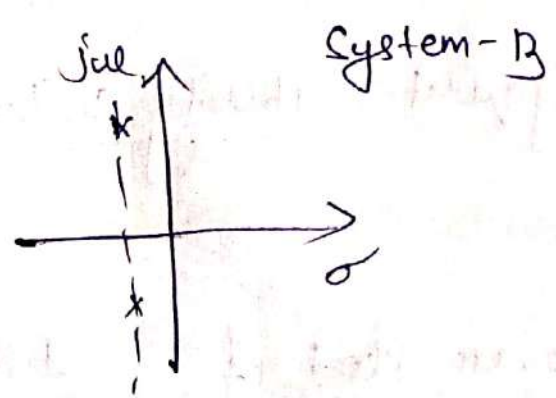 jω
System-B
σ